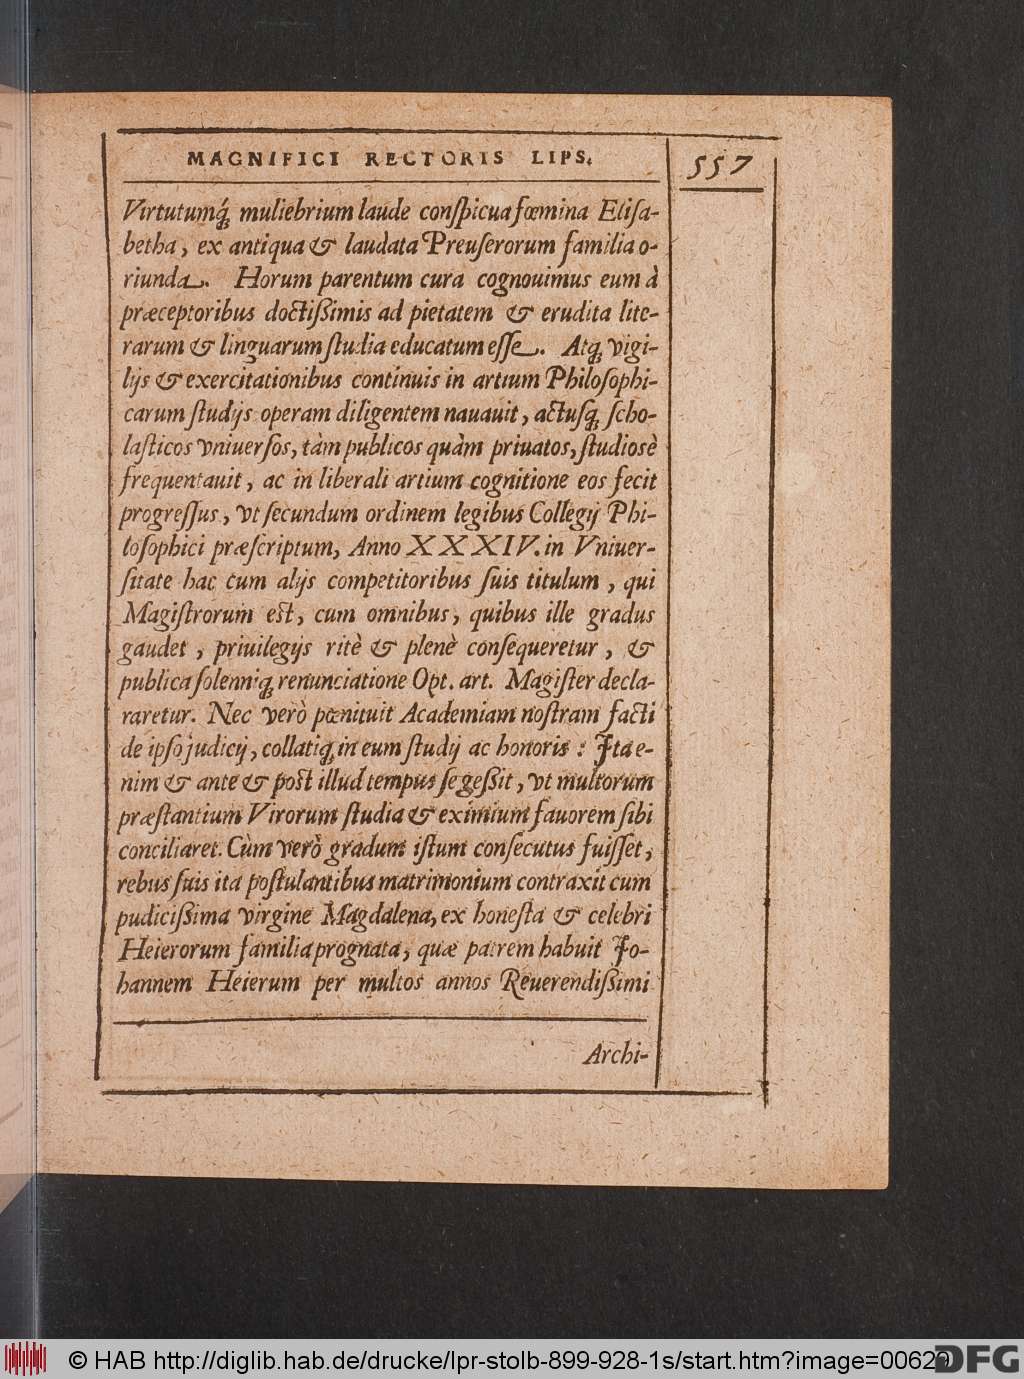 MAGNIFICI RECTORIS LIPS.
557
Virtutumq́; muliebrium laude conſpicua fœmina Eliſa-
betha, ex antiqua & laudata Preuſerorum familia o-
riunda. Horum parentum cura cognouimus eum à
præceptoribus doctiſſimis ad pietatem & erudita lite-
rarum & linguarum ſtudia educatum eſſe. Atq; vigi-
lijs & exercitationibus continuis in artium Philoſophi-
carum ſtudijs operam diligentem nauauit, actuſq; ſcho-
laſticos vniuerſos, tàm publicos quàm priuatos, ſtudiosè
frequentauit, ac in liberali artium cognitione eos fecit
progreſſus, vt ſecundum ordinem legibus Collegij Phi-
loſophici præſcriptum, Anno XXXIV. in Vniuer-
ſitate hac cum alijs competitoribus ſuis titulum, qui
Magiſtrorum eſt, cum omnibus, quibus ille gradus
gaudet, priuilegijs ritè & plenè conſequeretur, &
publica ſolenniq; renunciatione Opt. art. Magiſter decla-
raretur. Nec verò pœnituit Academiam noſtram facti
de ipſo judicij, collatiq; in eum ſtudij ac honoris: Ita e-
nim & ante & poſt illud tempus ſe geſſit, vt multorum
præſtantium Virorum ſtudia & eximium fauorem ſibi
conciliaret. Cùm verò gradum iſtum conſecutus fuiſſet,
rebus ſuis ita poſtulantibus matrimonium contraxit cum
pudiciſſima virgine Magdalena, ex honeſta & celebri
Heierorum familia prognata, quæ patrem habuit Jo-
hannem Heierum per multos annos Reuerendiſſimi
Archi-
© HAB http://diglib.hab.de/drucke/lpr-stolb-899-928-1s/start.htm?image=00629
DFG